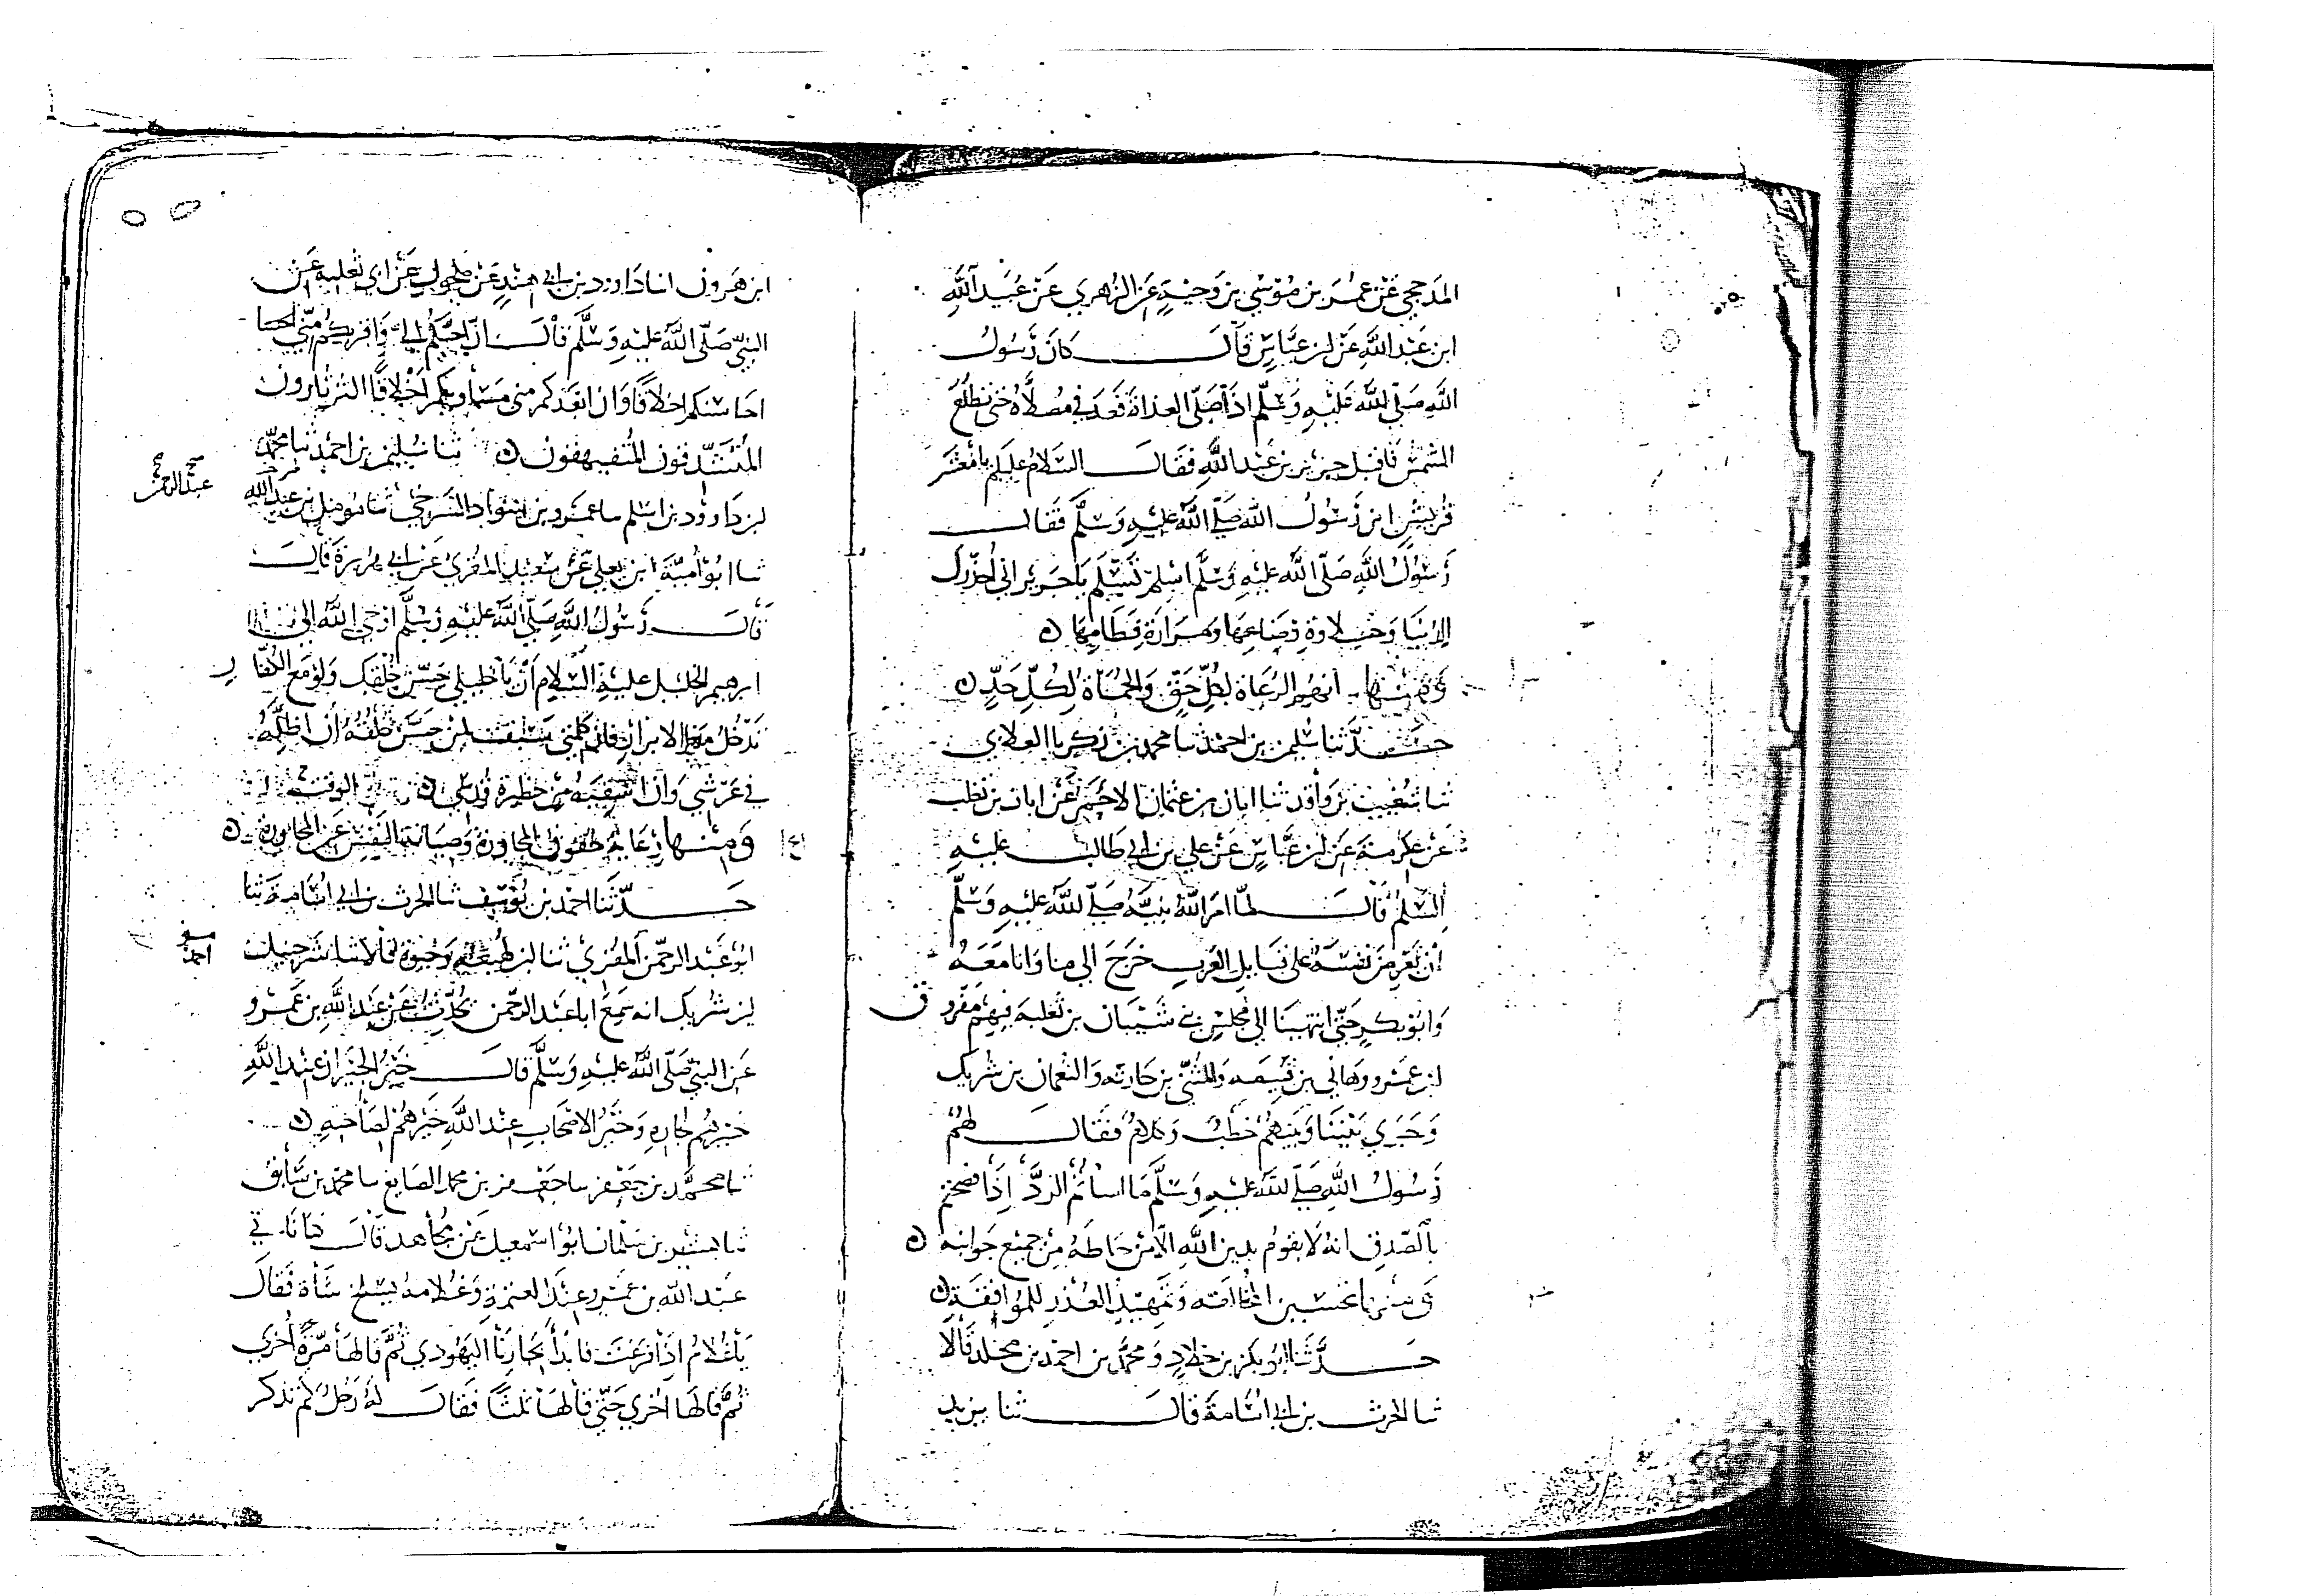 المدحجي عن عمر بن موسى بن وجيه عن الزهري عن عبيد الله
ابن عبد الله عن ابن عباس قال كان رسول
الله صلى الله عليه وسلم اذا صلى الغداة قعد في مصلاه حتى تطلع
الشمس فاقبل جرير بن عبد الله فقال السلام عليكم يا معشر
قريش اين رسول الله صلى الله عليه وسلم فقال
رسول الله صلى الله عليه وسلم اسلم تسلم يا جرير اني احذرك
الدنيا وحلاوة رضاعها ومرارة فطامها
ومنها انهم الرعاة لكل حق والحماة لكل حد
حدثنا سليمن بن احمد ثنا محمد بن زكريا الغلابي
ثنا شعيب بن واقد ثنا ابان بن عثمان الاحمر عن ابان بن تغلب
عن عكرمة عن ابن عباس عن علي بن ابي طالب عليه
السلم قال لما امر الله نبيه صلى الله عليه وسلم
ان يعرض نفسه على قبايل العرب خرج الى منا وانا معه
وابو بكر حتى انتهينا الى مجلس بني شيبان بن ثعلبة فيهم مفروق
ابن عمرو وهاني بن قبيصه والمثنى بن حارثه والنعمان بن شريك
وجرى بيننا وبينهم خطب وكلام فقال لهم
رسول الله صلى الله عليه وسلم ما اسأتم الرد اذا فصحتم
بالصدق انه لا يقوم بدين الله الا من حاطه من جميع جوانبه
ومنها تحسين المخالقه وتمهيد العذر للموافقة
حدثنا ابو بكر بن خلاد ومحمد بن احمد بن مخلد قالا
ثنا الحرث بن ابي اسامة قال ثنا يزيد
ابن هرون انا داود بن ابي هند عن مكحول عن ابي ثعلبة عن
النبي صلى الله عليه وسلم قال ان احبكم الي واقربكم مني
احاسنكم اخلاقا وان ابعدكم مني مساويكم اخلاقا الثرثارون
المتشدقون المتفيهقون ثنا سليمن بن احمد ثنا محمد
ابن داود بن اسلم ثنا عمرو بن سواد السرحي ثنا مومل بن عبد الله
صح
عبد الرحمن
ثنا ابو امية ابن يعلى عن سعيد المقبري عن ابي هريرة قال
قال رسول الله صلى الله عليه وسلم اوحى الله الى
ابرهيم الخليل عليه السلام ان يا خليلي حسن خلقك ولو مع الكفار
تدخل مداخل الابرار فان كلمتي سبقت لمن حسن خلقه ان اظله
في عرشي وان اسقيه من حظيرة قدسي
ومنها رعاية حقوق المجاورة وصيانة النفس عن المحاورة
حدثنا احمد بن يوسف ثنا الحرث بن ابي اسامة ثنا
ابو عبد الرحمن المقري ثنا ابن لهيعة وحيوة قالا ثنا شرحبيل
ابن شريك انه سمع ابا عبد الرحمن يحدث عن عبد الله بن عمرو
عن النبي صلى الله عليه وسلم قال خير الجيران عند الله
خيرهم لجاره وخير الاصحاب عند الله خيرهم لصاحبه
ثنا محمد بن جعفر ثنا جعفر بن محمد الصايغ ثنا محمد بن سابق
ثنا بشير بن سلمان ابو اسمعيل عن مجاهد قال كنا ناتي
عبد الله بن عمرو عند العنمة وغلامه يسلخ شاة فقال
يا غلام اذا فرغت فابدأ بجارنا اليهودي ثم قالها مرة اخرى
ثم قالها اخرى حتى قالها ثلثا فقال له رجل كم تذكر